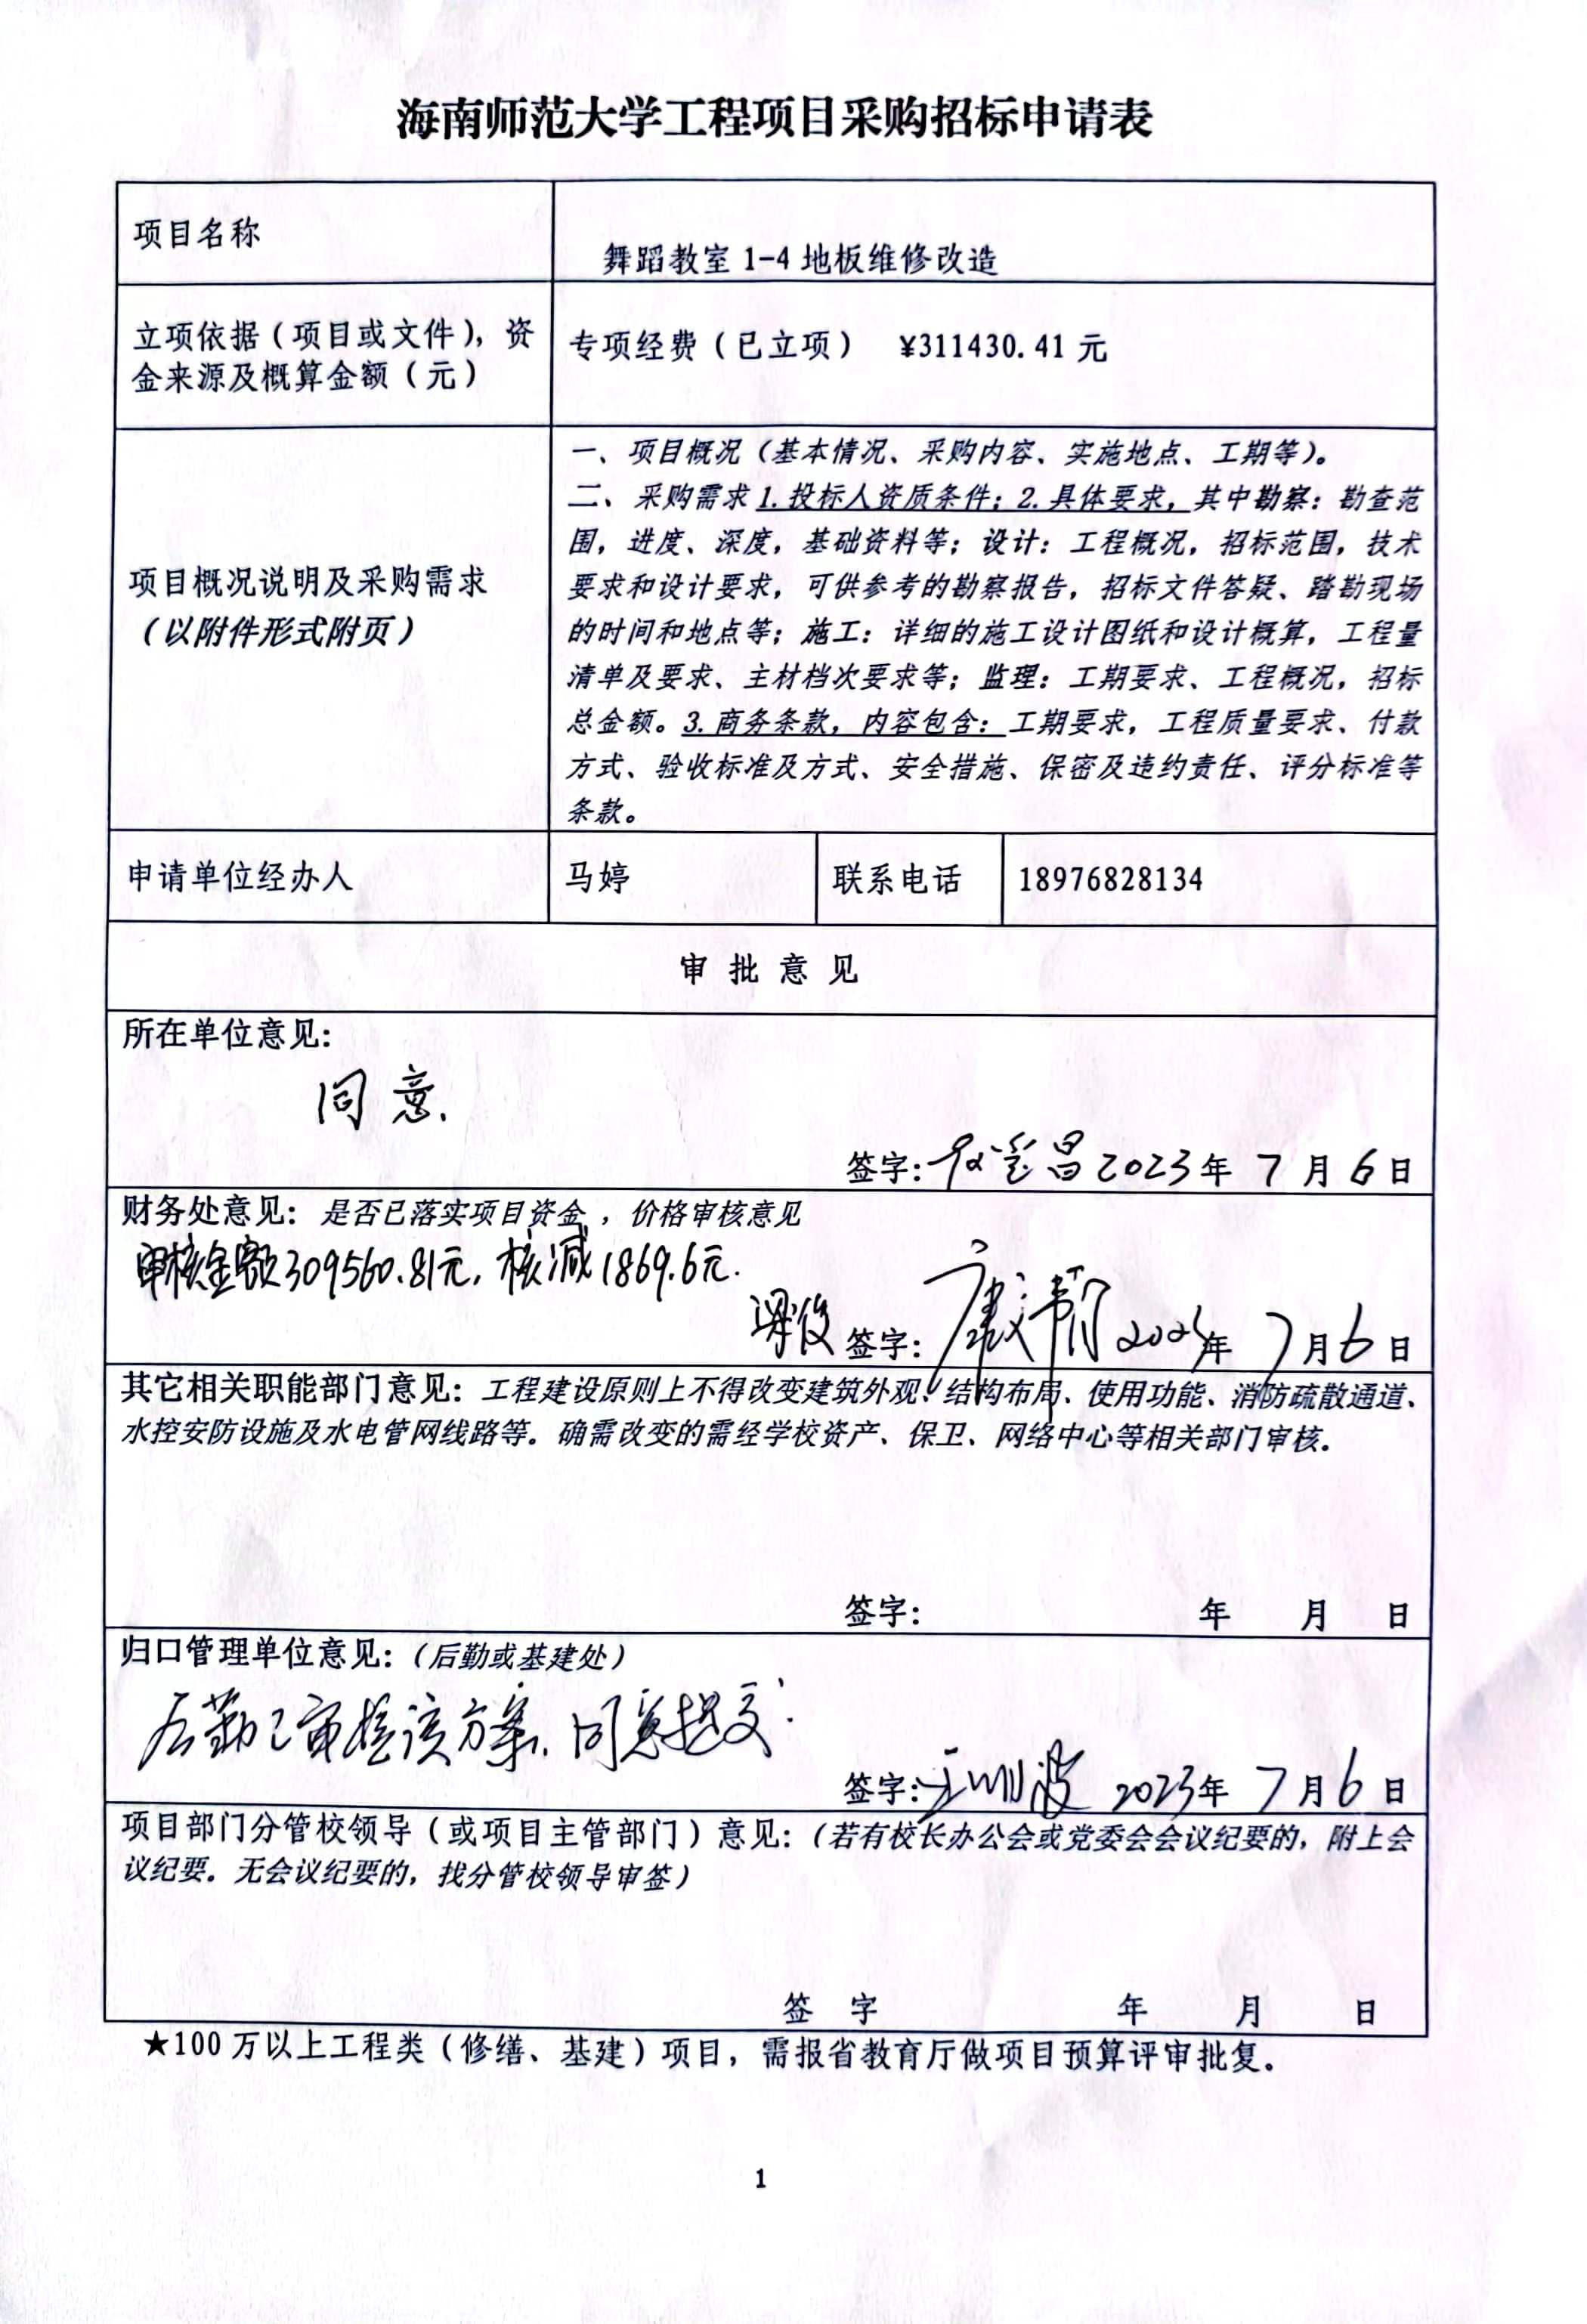 海南师范大学工程项目采购招标申请表
项目名称
舞蹈教室 1-4 地板维修改造
立项依据（项目或文件），资
金来源及概算金额（元）
专项经费（已立项） ¥311430.41 元
项目概况说明及采购需求
（以附件形式附页）
一、项目概况（基本情况、采购内容、实施地点、工期等）。
二、采购需求 1.投标人资质条件；2.具体要求，其中勘察：勘查范
围，进度、深度，基础资料等；设计：工程概况，招标范围，技术
要求和设计要求，可供参考的勘察报告，招标文件答疑、踏勘现场
的时间和地点等；施工：详细的施工设计图纸和设计概算，工程量
清单及要求、主材档次要求等；监理：工期要求、工程概况，招标
总金额。3.商务条款，内容包含：工期要求，工程质量要求、付款
方式、验收标准及方式、安全措施、保密及违约责任、评分标准等
条款。
申请单位经办人 马婷 联系电话 18976828134
审 批 意 见
所在单位意见：
同意.
签字： 2023年 7月 6日
财务处意见：是否已落实项目资金，价格审核意见
审核金额309560.81元，核减1869.6元.
签字： 2023年 7月6日
其它相关职能部门意见：工程建设原则上不得改变建筑外观、结构布局、使用功能、消防疏散通道、
水控安防设施及水电管网线路等。确需改变的需经学校资产、保卫、网络中心等相关部门审核。
签字： 年 月 日
归口管理单位意见：（后勤或基建处）
后勤已审核该方案，同意提交.
签字： 2023年 7月6日
项目部门分管校领导（或项目主管部门）意见：（若有校长办公会或党委会会议纪要的，附上会
议纪要。无会议纪要的，找分管校领导审签）
签 字 年 月 日
★100 万以上工程类（修缮、基建）项目，需报省教育厅做项目预算评审批复。
1